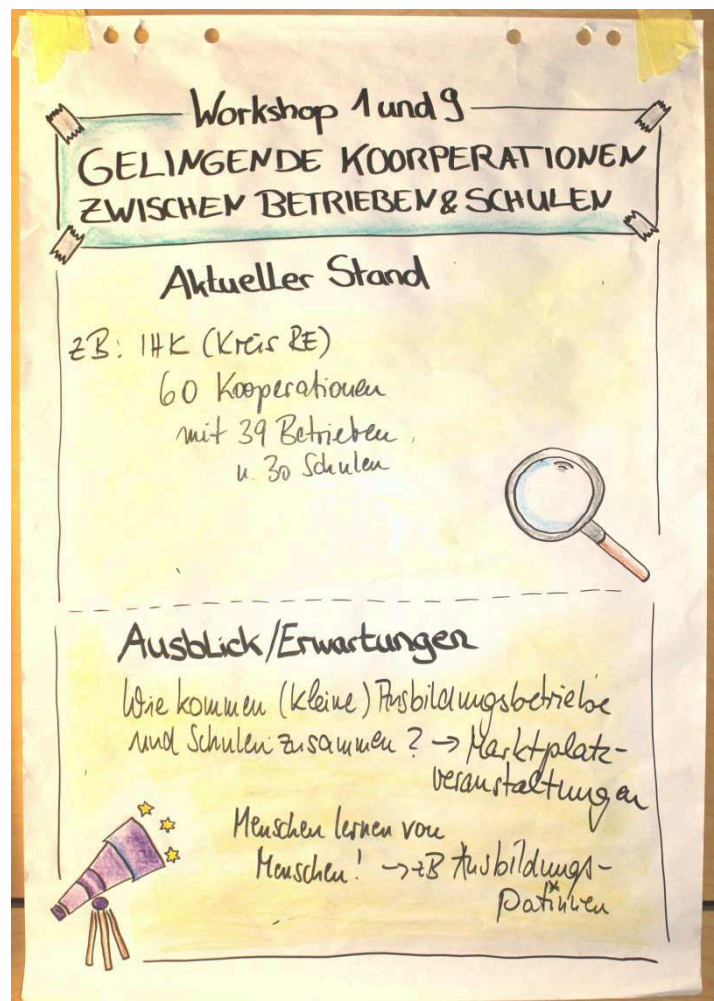 Workshop 1 und 9
GELINGENDE KOORPERATIONEN
ZWISCHEN BETRIEBEN & SCHULEN
Aktueller Stand
zB: IHK (Kreis RE)
60 Kooperationen
mit 39 Betrieben
u. 30 Schulen
Ausblick/Erwartungen
Wie kommen (kleine) Ausbildungsbetriebe
und Schulen zusammen? → Marktplatz-
veranstaltungen
Menschen lernen von
Menschen! → zB Ausbildungs-
pat*innen